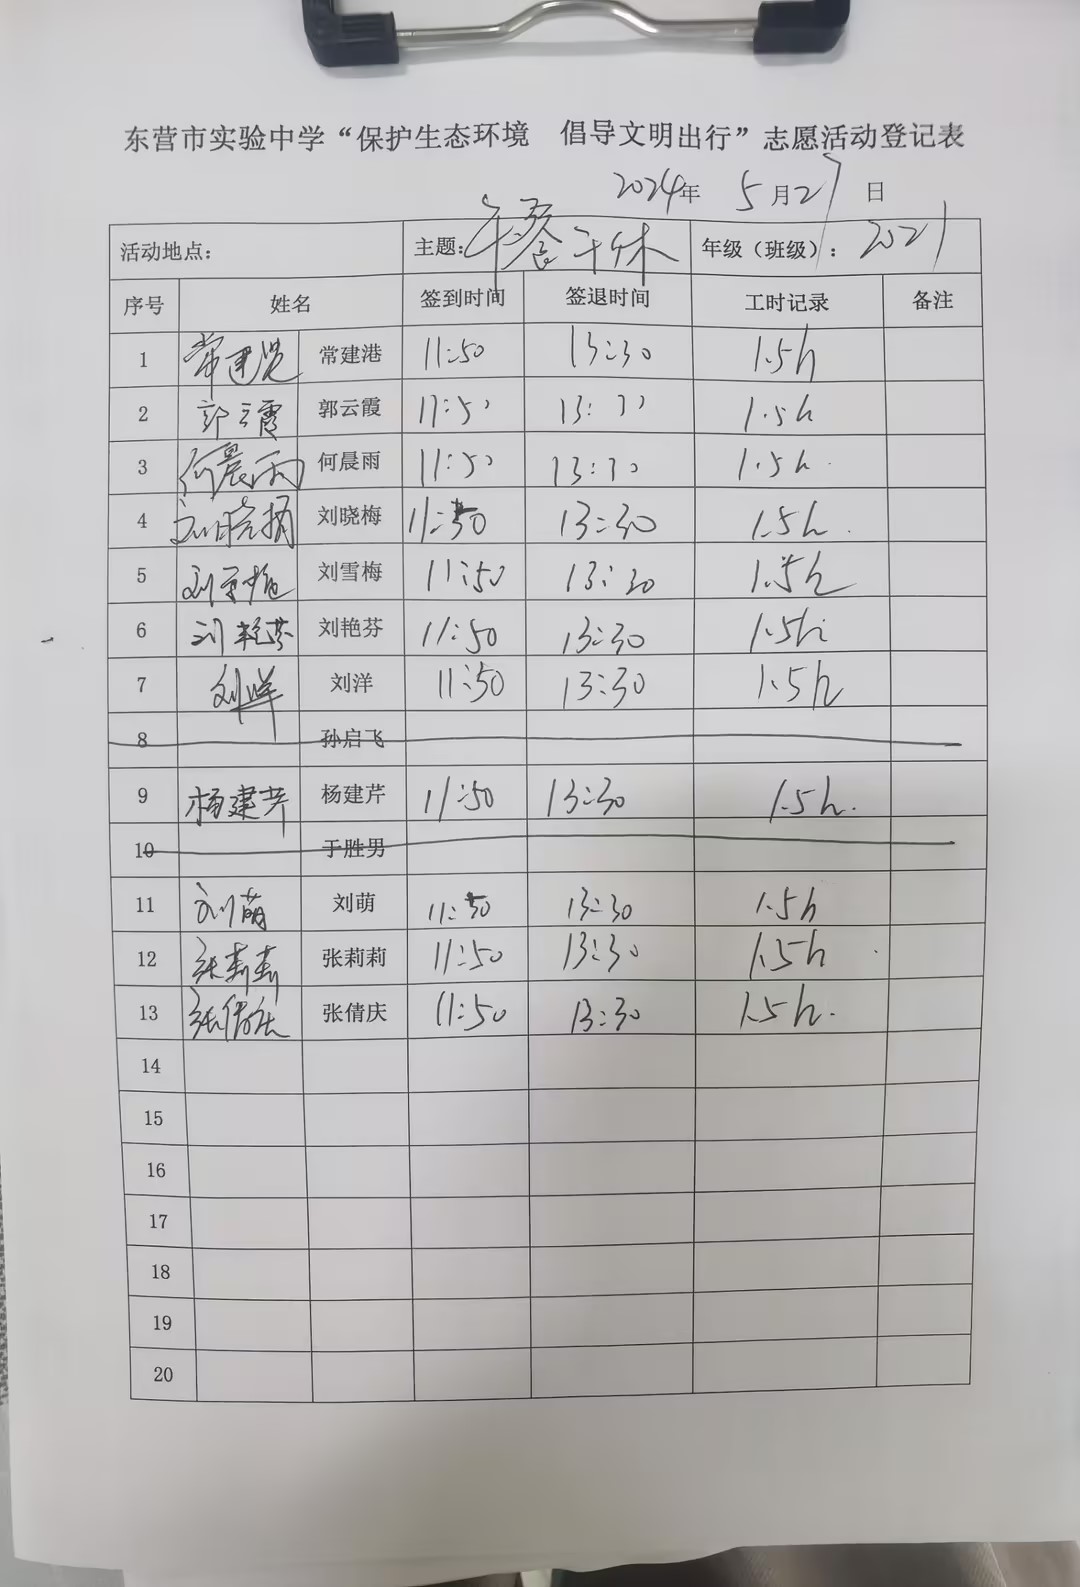 东营市实验中学“保护生态环境 倡导文明出行”志愿活动登记表
2024年 5月27日
活动地点： 主题：午餐午休 年级（班级）：2021
序号 姓名 签到时间 签退时间 工时记录 备注
1 常建港 常建港 11:50 13:30 1.5h
2 郭云霞 郭云霞 11:50 13:30 1.5h
3 何晨雨 何晨雨 11:50 13:30 1.5h
4 刘晓梅 刘晓梅 11:50 13:30 1.5h
5 刘雪梅 刘雪梅 11:50 13:30 1.5h
6 刘艳芬 刘艳芬 11:50 13:30 1.5h
7 刘洋 刘洋 11:50 13:30 1.5h
8 孙启飞
9 杨建芹 杨建芹 11:50 13:30 1.5h.
10 于胜男
11 刘萌 刘萌 11:50 13:30 1.5h
12 张莉莉 张莉莉 11:50 13:30 1.5h
13 张倩庆 张倩庆 11:50 13:30 1.5h.
14
15
16
17
18
19
20